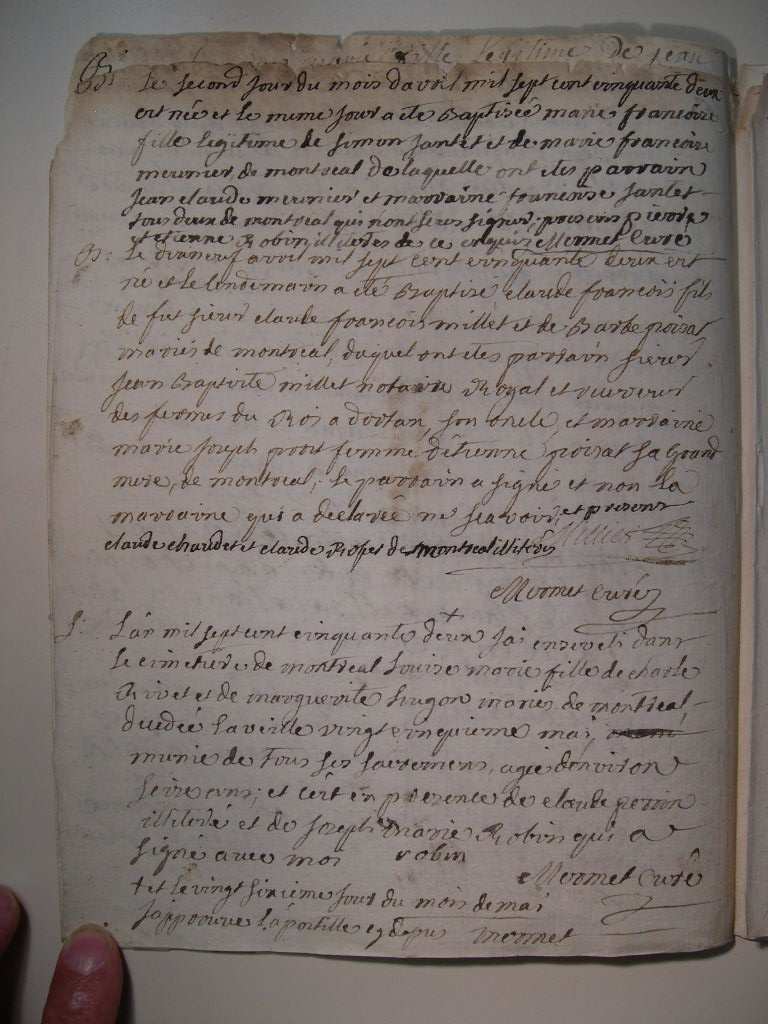 fille legitime de jean
B: Le second jour du mois davril mil sept cent cinquante deux
est née et le meme jour a ete Baptisée marie francoise
fille legitime de simon jantet et de marie francoise
meunier de montreal de laquelle ont etes parrain
jean claude meunier et marraine jantet
tous deux de montreal qui nont seus signer, presens pierre
et etienne Robin illiteres de ce enquis Mermet Curé
B: Le dixneuf avril mil sept cent cinquante deux est
né et le lendemain a eté Baptisé claude francois fils
de fut sieur claude francois millet et de Barbe poisat
mariés de montreal, duquel ont etes parrain sieur
jean Baptiste millet notaire Royal et receveur
des fermes du Roi a dortan, son oncle, et marraine
marie joseph femme d'etienne poisat sa Grand
mere, de montreal, le parrain a signé et non la
marraine qui a declarée ne scavoir, et presens
claude chaudet et claude de montreal illiteres Millet
Mermet Curé
S: L'an mil sept cent cinquante deux + jai enseveli dans
le cimetiere de montreal Louise marie fille de charle
Rivet et de marguerite hugon mariés de montreal,
decedée la veille vingt cinquieme mai,
munie de tous ses sacremens, agée denviron
seize ans; et cest en presence de claude perrin
illiteré et de joseph marie Robin qui a
signé avec moi robin
Mermet Curé
+ et le vingt sixieme jour du mois de mai
japprouve lapostille cy dessus mermet